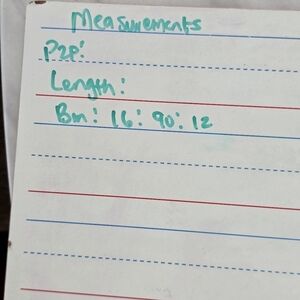 Measurements
P2P:
Length:
Bm: 16: 90: 12